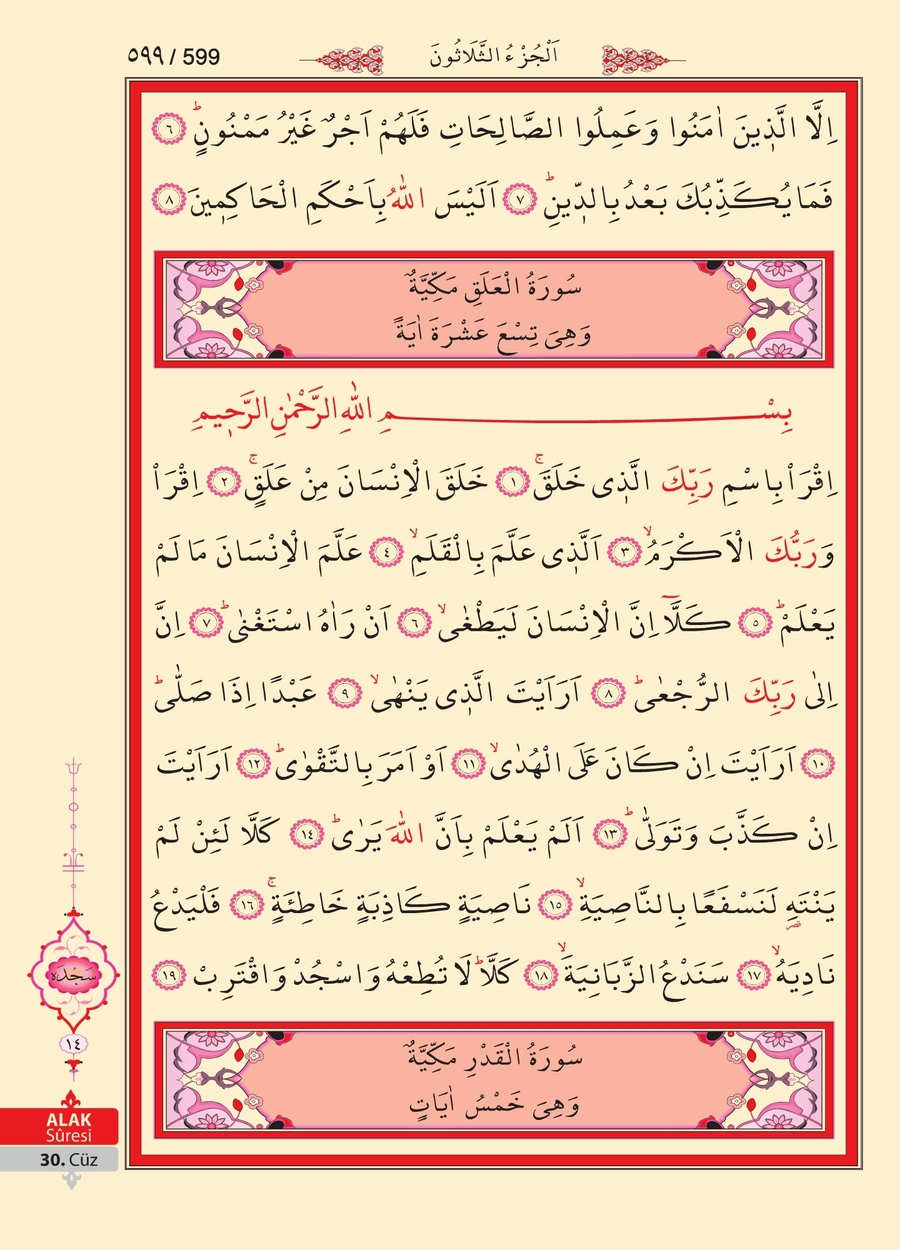 ٥٩٩ / 599
اَلْجُزْءُ الثَّلَاثُونَ
اِلَّا الَّذ۪ينَ اٰمَنُوا وَعَمِلُوا الصَّالِحَاتِ فَلَهُمْ اَجْرٌ غَيْرُ مَمْنُونٍۜ ﴿٦﴾
فَمَا يُكَذِّبُكَ بَعْدُ بِالدّ۪ينِۜ ﴿٧﴾ اَلَيْسَ اللّٰهُ بِاَحْكَمِ الْحَاكِم۪ينَ ﴿٨﴾
سُورَةُ الْعَلَقِ مَكِّيَّةٌ
وَهِىَ تِسْعَ عَشْرَةَ اٰيَةً
بِسْمِ اللّٰهِ الرَّحْمٰنِ الرَّح۪يمِ
اِقْرَاْ بِاسْمِ رَبِّكَ الَّذ۪ى خَلَقَۚ ﴿١﴾ خَلَقَ الْاِنْسَانَ مِنْ عَلَقٍۚ ﴿٢﴾ اِقْرَاْ
وَرَبُّكَ الْاَكْرَمُۙ ﴿٣﴾ اَلَّذ۪ى عَلَّمَ بِالْقَلَمِۙ ﴿٤﴾ عَلَّمَ الْاِنْسَانَ مَا لَمْ
يَعْلَمْۜ ﴿٥﴾ كَلَّٓا اِنَّ الْاِنْسَانَ لَيَطْغٰىۙ ﴿٦﴾ اَنْ رَاٰهُ اسْتَغْنٰىۜ ﴿٧﴾ اِنَّ
اِلٰى رَبِّكَ الرُّجْعٰىۜ ﴿٨﴾ اَرَاَيْتَ الَّذ۪ى يَنْهٰىۙ ﴿٩﴾ عَبْدًا اِذَا صَلّٰىۜ
﴿١٠﴾ اَرَاَيْتَ اِنْ كَانَ عَلَى الْهُدٰىۙ ﴿١١﴾ اَوْ اَمَرَ بِالتَّقْوٰىۜ ﴿١٢﴾ اَرَاَيْتَ
اِنْ كَذَّبَ وَتَوَلّٰىۜ ﴿١٣﴾ اَلَمْ يَعْلَمْ بِاَنَّ اللّٰهَ يَرٰىۜ ﴿١٤﴾ كَلَّا لَئِنْ لَمْ
يَنْتَهِ لَنَسْفَعًا بِالنَّاصِيَةِۙ ﴿١٥﴾ نَاصِيَةٍ كَاذِبَةٍ خَاطِئَةٍۚ ﴿١٦﴾ فَلْيَدْعُ
نَادِيَهُۙ ﴿١٧﴾ سَنَدْعُ الزَّبَانِيَةَۙ ﴿١٨﴾ كَلَّاۜ لَا تُطِعْهُ وَاسْجُدْ وَاقْتَرِبْ ﴿١٩﴾
سُورَةُ الْقَدْرِ مَكِّيَّةٌ
وَهِىَ خَمْسُ اٰيَاتٍ
سَجْدَه
١٤
ALAK
Sûresi
30. Cüz